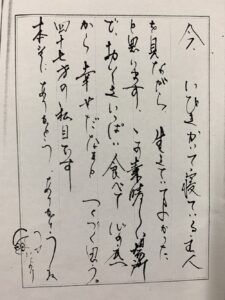 今 いびきかいて寝ている主人
を見ながら 生きていてよかった
と思います。この素晴しい場所
で、おいしいもの いっぱい食べて 心の底
から 幸せだなぁと つくづく思う。
四十七才の 私目です
本当に ありがとう ありがとうね